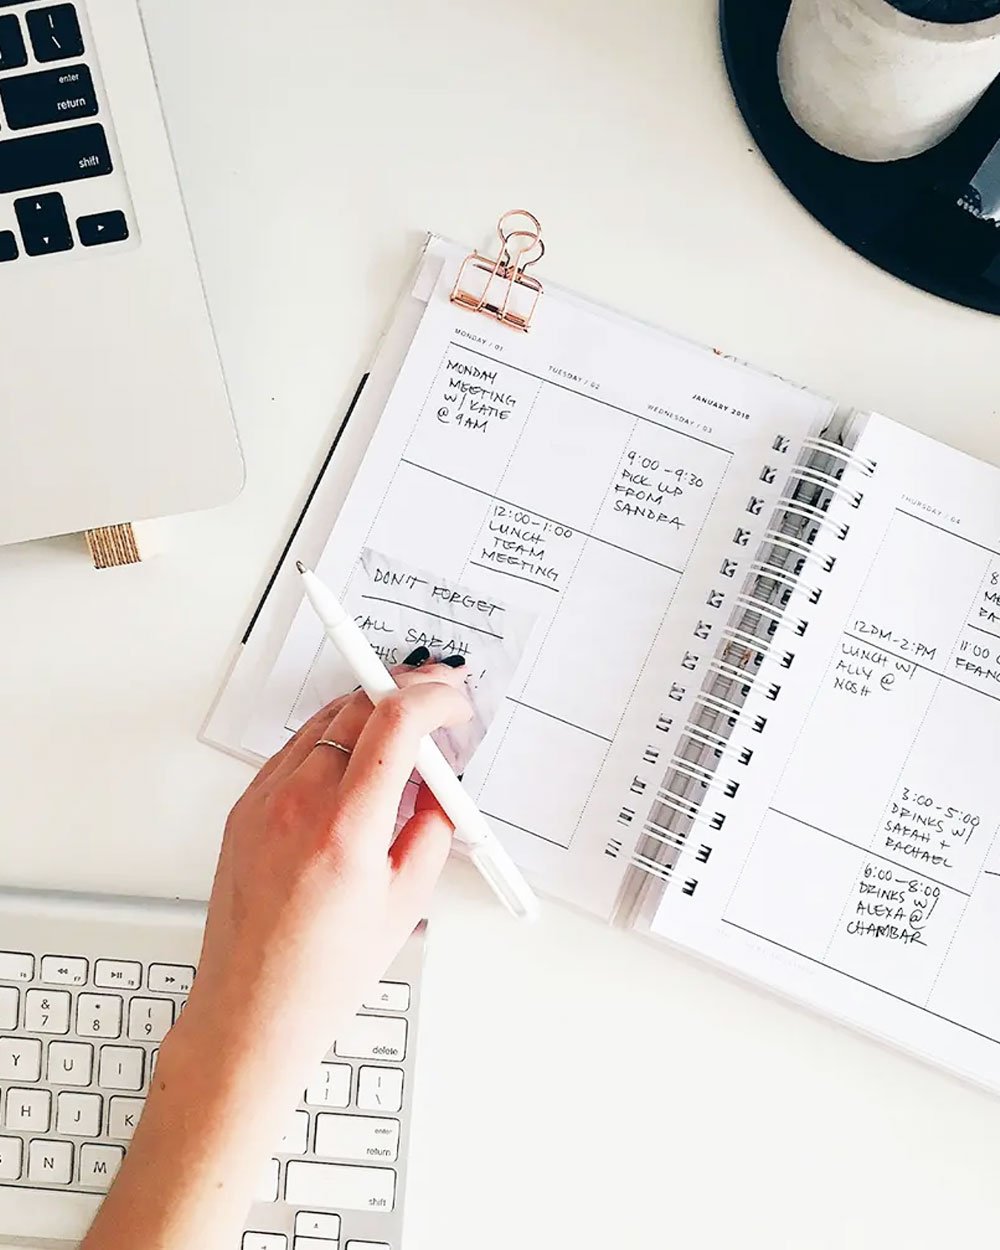 enter
return
shift
MONDAY / 01
MONDAY
MEETING
W/ KATIE
@ 9AM
TUESDAY / 02
12:00-1:00
LUNCH
TEAM
MEETING
JANUARY 2018
WEDNESDAY / 03
9:00-9:30
PICK UP
FROM
SANDRA
DON'T FORGET
CALL SARAH
THIS
THURSDAY / 04
12PM-2:PM
LUNCH W/
ALLY @
NOSH
3:00-5:00
DRINKS W/
SARAH +
RACHAEL
6:00-8:00
DRINKS W/
ALEXA @
CHAMBAR
8
11:00
F6
F7
F8
&
7
*
8
(
9
delete
Y
U
I
}
]
|
\
H
J
K
enter
return
N
M
shift